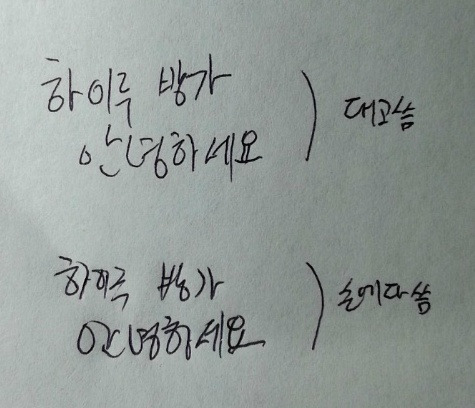 하이루 방가
안녕하세요
대고씀
하이루 방가
안녕하세요
손에다씀